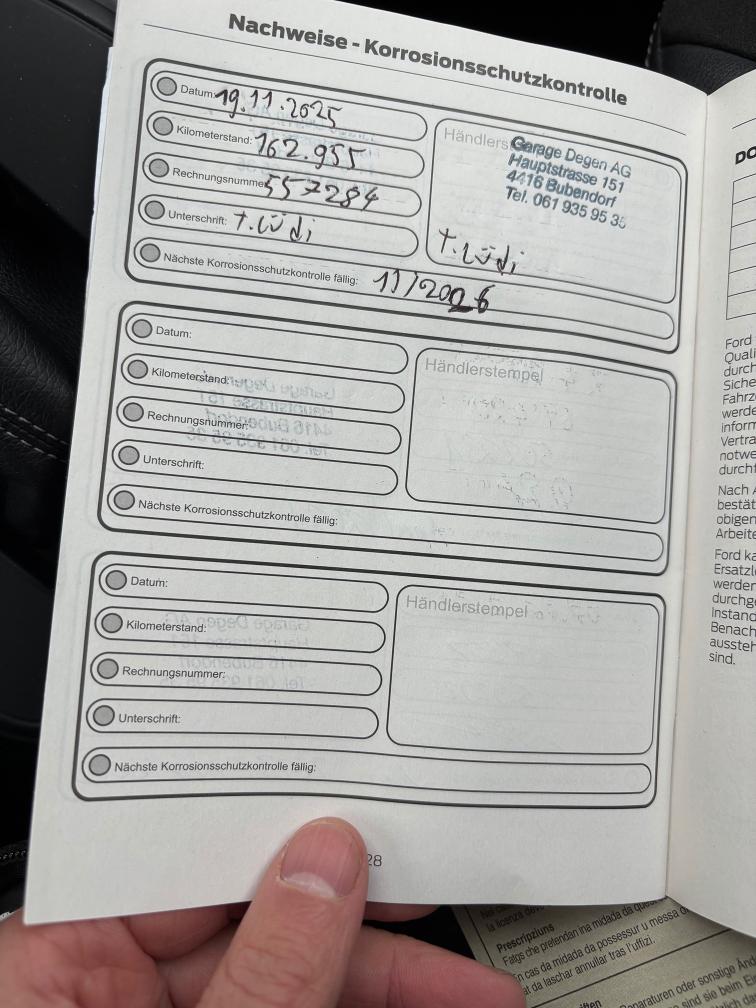 Nachweise - Korrosionsschutzkontrolle
Datum: 19.11.2025
Kilometerstand: 162.955
Rechnungsnummer: 557284
Unterschrift: T. Lüdi
Händlers
Garage Degen AG
Hauptstrasse 151
4416 Bubendorf
Tel. 061 935 95 35
T. Lüdi
Nächste Korrosionsschutzkontrolle fällig: 11/2026
Datum:
Kilometerstand:
Rechnungsnummer:
Unterschrift:
Händlerstempel
Nächste Korrosionsschutzkontrolle fällig:
Datum:
Kilometerstand:
Rechnungsnummer:
Unterschrift:
Händlerstempel
Nächste Korrosionsschutzkontrolle fällig:
28
DO
Ford
Quali
durch
Siche
Fahrz
werde
inform
Vertra
notwe
durchf
Nach A
bestät
obigen
Arbeite
Ford ka
Ersatzl
werden
durchge
Instand
Benach
aussteh
sind.
la licenza
Prescripziuns
Fatgs che pretendan ina midada da
En cas da midada da possessur u messa
at da laschar annullar tras l'uffizi.
Reparaturen oder sonstige Änd
sind sie beim